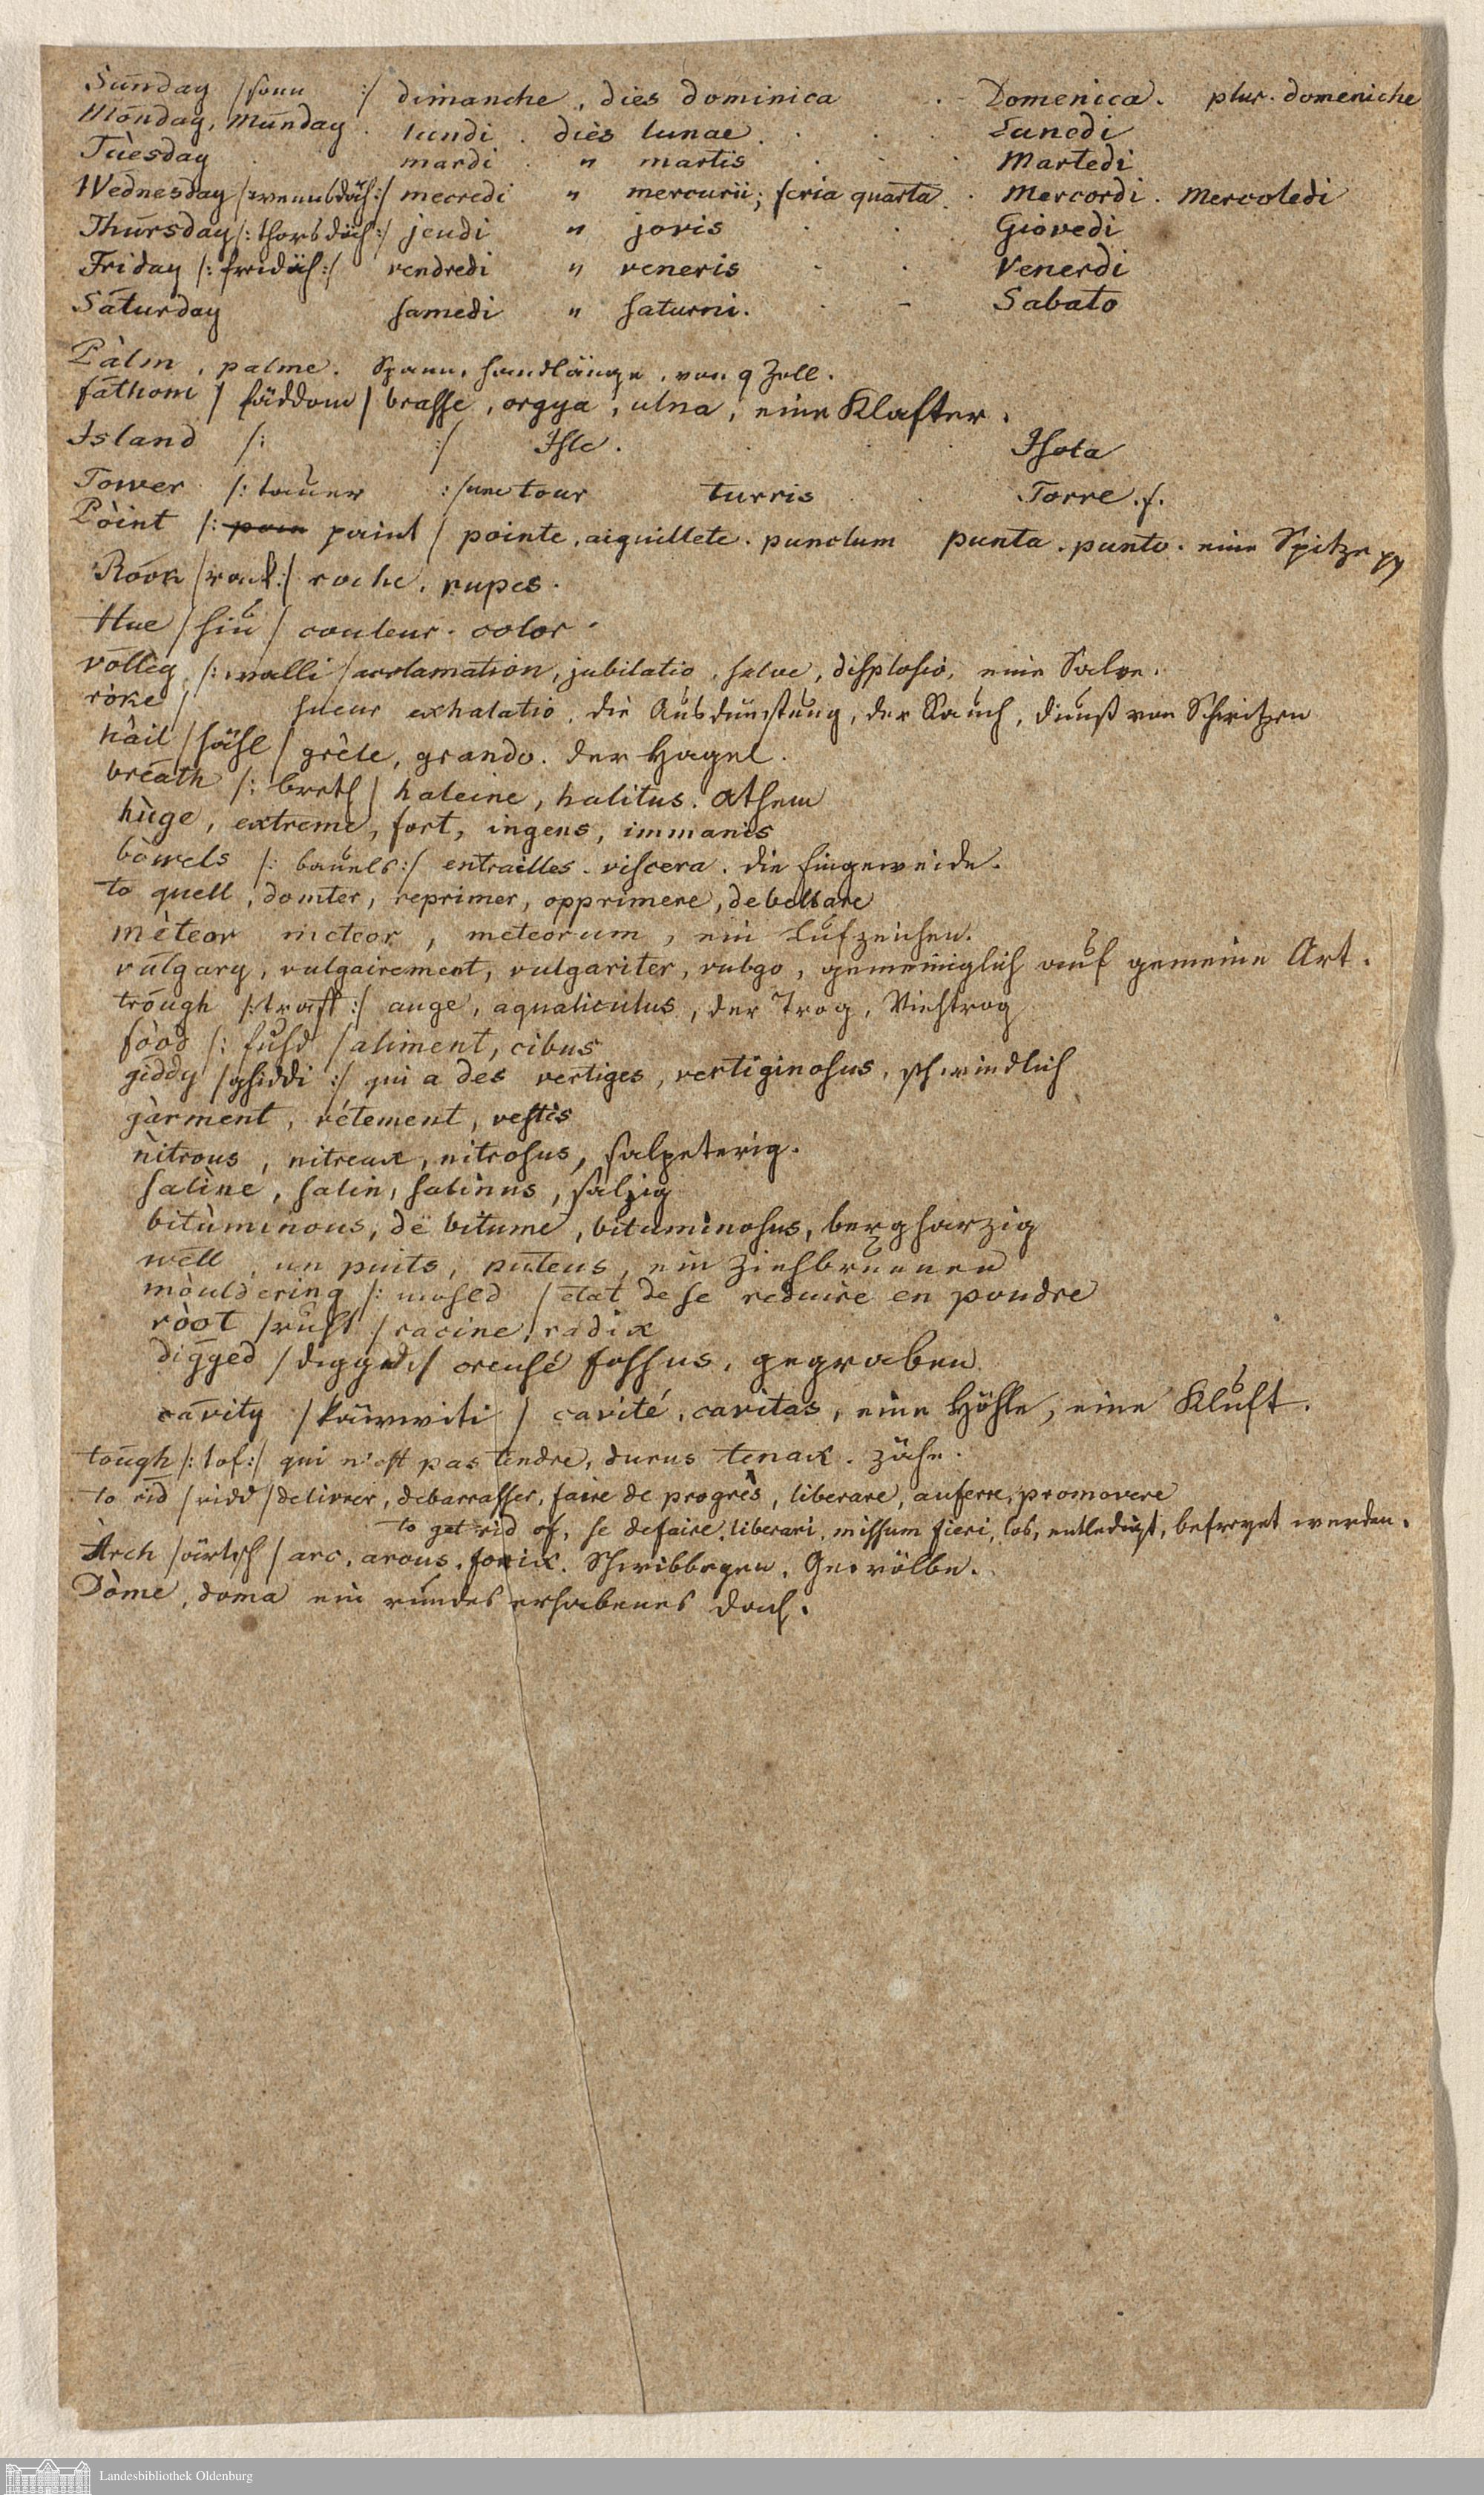 Sunday /sonn :/ dimanche, dies dominica . - Domenica. plur. domeniche
Monday, Munday. lundi. dies lunae. Lunedi
Tùesday mardi " martis Martedi
Wednesday /:wennsdäh:/ mecredi " mercurii; feria quarta. Mercordi. Mercoledi
Thursday /:thorsdäh:/ jeudi " jovis Giovedi
Friday /: fridäh:/ vendredi " veneris Venerdi
Saturday samedi " saturni. - Sabato
Pàlm, palme. Spann, handlänge, von 9 Zoll.
fathom / fäddom / brasse, orgya, ulna, eine Klafter.
Island /: :/ Isle. Isola
Tower /: tauer :/ une tour turris Torre. f.
Pòint /: paint / pointe, aiguillete. punctum punta. punto. eine Spitze
Rock /rack:/ roche. rupes.
Hue /hiu/ couleur. color.
volley /: walli /acclamation, jubilatio, salve, displosio, eine Salve.
ròke / sueur exhalatio, die Ausdünstung, der Rauch, dunst von Schwitzen
hàil /hähl / grèle, grando. der Hagel.
breath /: breth / haleine, halitus. Athem
hùge, extreme, fort, ingens, immanis
bòwels /: bauels:/ entrailles. viscera. die Eingeweide.
to quell, domter, reprimer, opprimere, debellare
mèteor meteor, meteorum, ein Lufzeichen.
vulgary, vulgairement, vulgariter, vulgo, gemeiniglich auf gemeine Art.
trough /:traff:/ auge, aqualiculus, der Trog, Viehtrog
fòod /: fuhd / aliment, cibus
giddy /ghiddi :/ qui a des vertiges, vertiginosus, schwindlich
gàrment, vétement, vestis
nìtrous, nitreux, nitrosus, salpeterig.
salìne, salin, salinus, salzig
bitùminous, de bitume, bituminosus, bergharzig
well, un puits, puteus, ein Ziehbrunnen
mòuldering /: mohld / etat de se reduire en poudre
ròot /ruht / racine, radix
digged /digged:/ creusé fossus, gegraben
cavity /käwwiti / cavité, cavitas, eine Höhle, eine Kluft.
tough /: tof:/ qui n'est pas tendre, durus tenax. zähe.
to rid /ridd /delivrer, debarrasser, faire de progrès, liberare, auferre, promovere
to get rid of, se defaire, liberari, missum fieri, los, entledigt, befreyet werden.
Àrch /ärtsh / arc, arcus, fornix. Schwibbogen, Gewölbe.
Dòme, doma ein rundes erhabenes dach.
Landesbibliothek Oldenburg